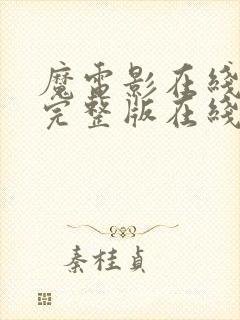 魔雷影在綫
完整版在綫
秦桂貞